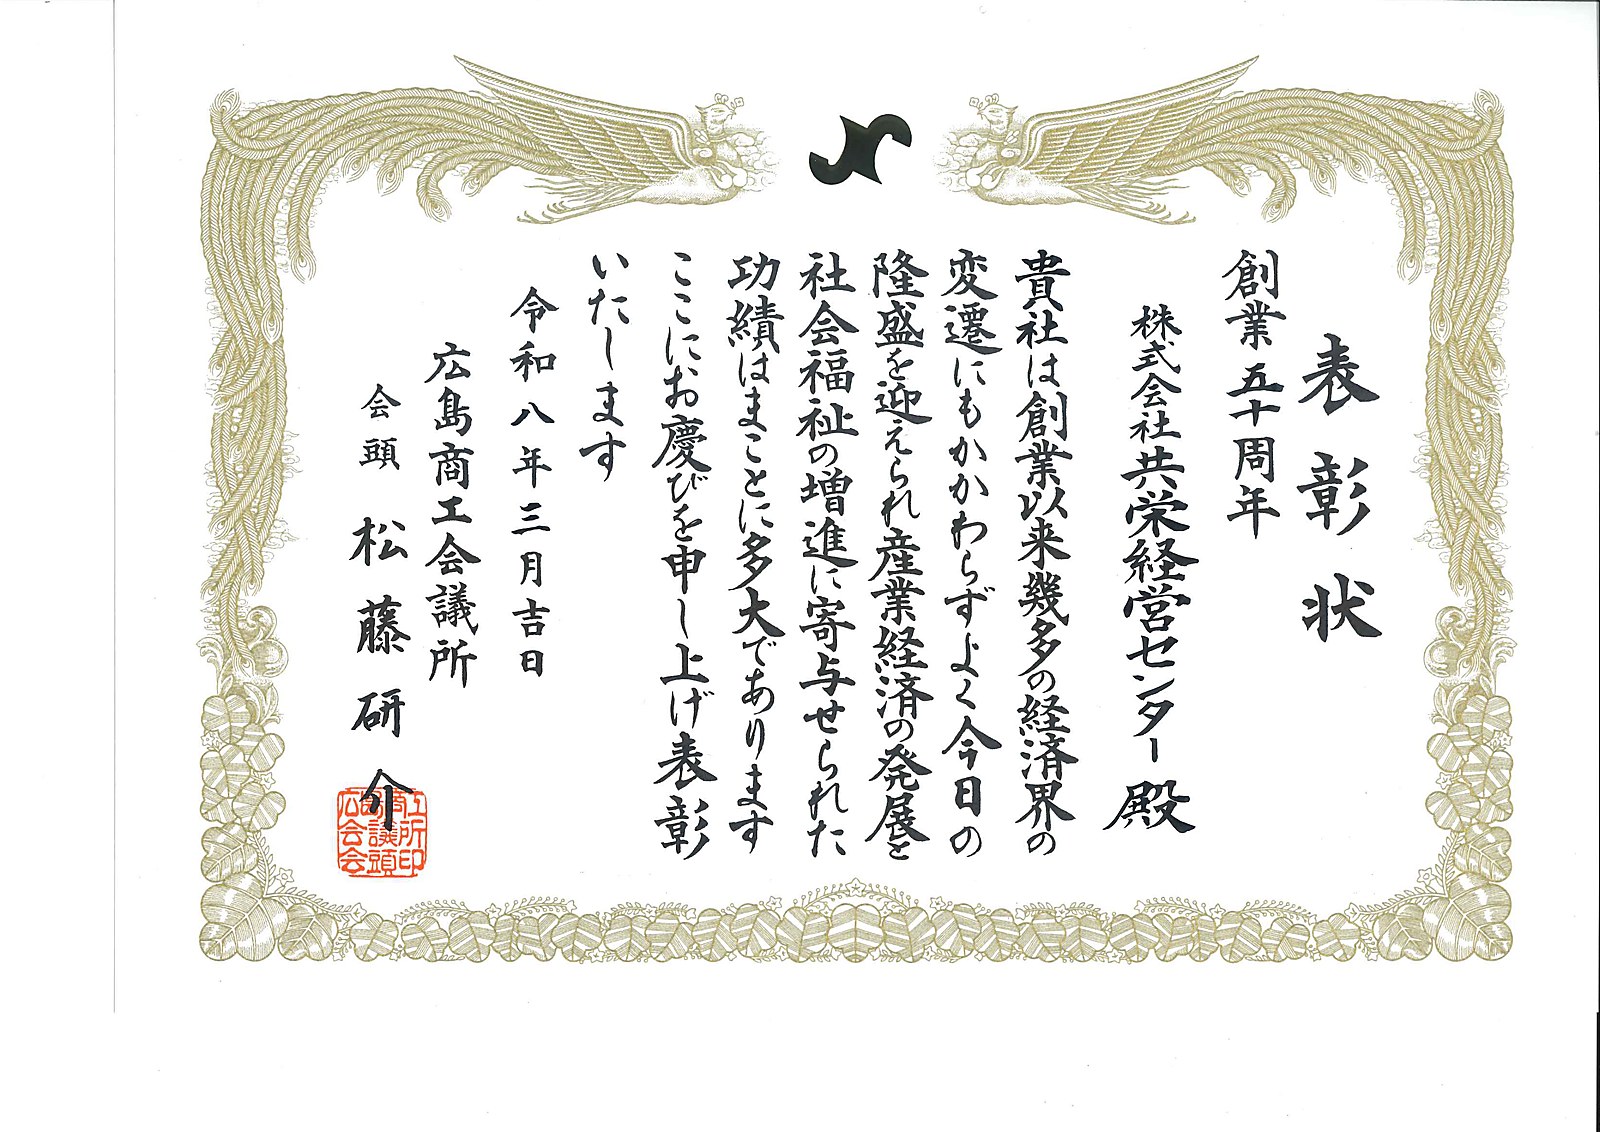 表彰状
創業五十周年
株式会社共栄経営センター 殿
貴社は創業以来幾多の経済界の
変遷にもかかわらずよく今日の
隆盛を迎えられ産業経済の発展と
社会福祉の増進に寄与せられた
功績はまことに多大であります
ここにお慶びを申し上げ表彰
いたします
令和八年三月吉日
広島商工会議所
会頭 松藤研介